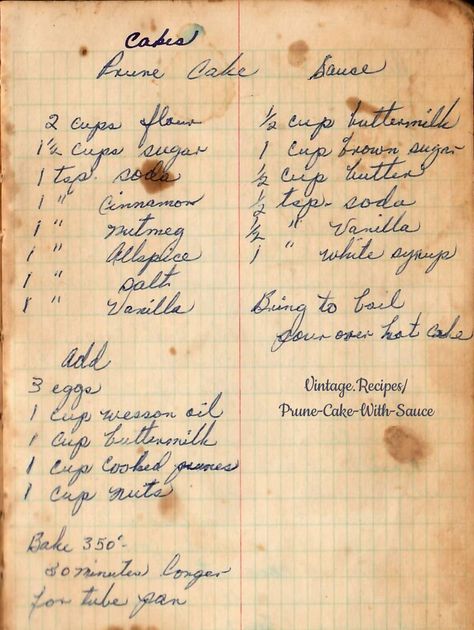 Cakes
Prune Cake
2 cups flour
1 1/2 cups sugar
1 tsp. soda
1 " Cinnamon
1 " nutmeg
1 " Allspice
1 " salt
1 " Vanilla
add
3 eggs
1 cup wesson oil
1 cup buttermilk
1 cup cooked prunes
1 cup nuts
Bake 350°
30 minutes longer
for tube pan
Sauce
1/2 cup buttermilk
1 cup brown sugar
1/2 cup butter
1/2 tsp. soda
1/2 " Vanilla
1 " white syrup
Bring to boil
pour over hot cake
Vintage.Recipes/
Prune-Cake-With-Sauce